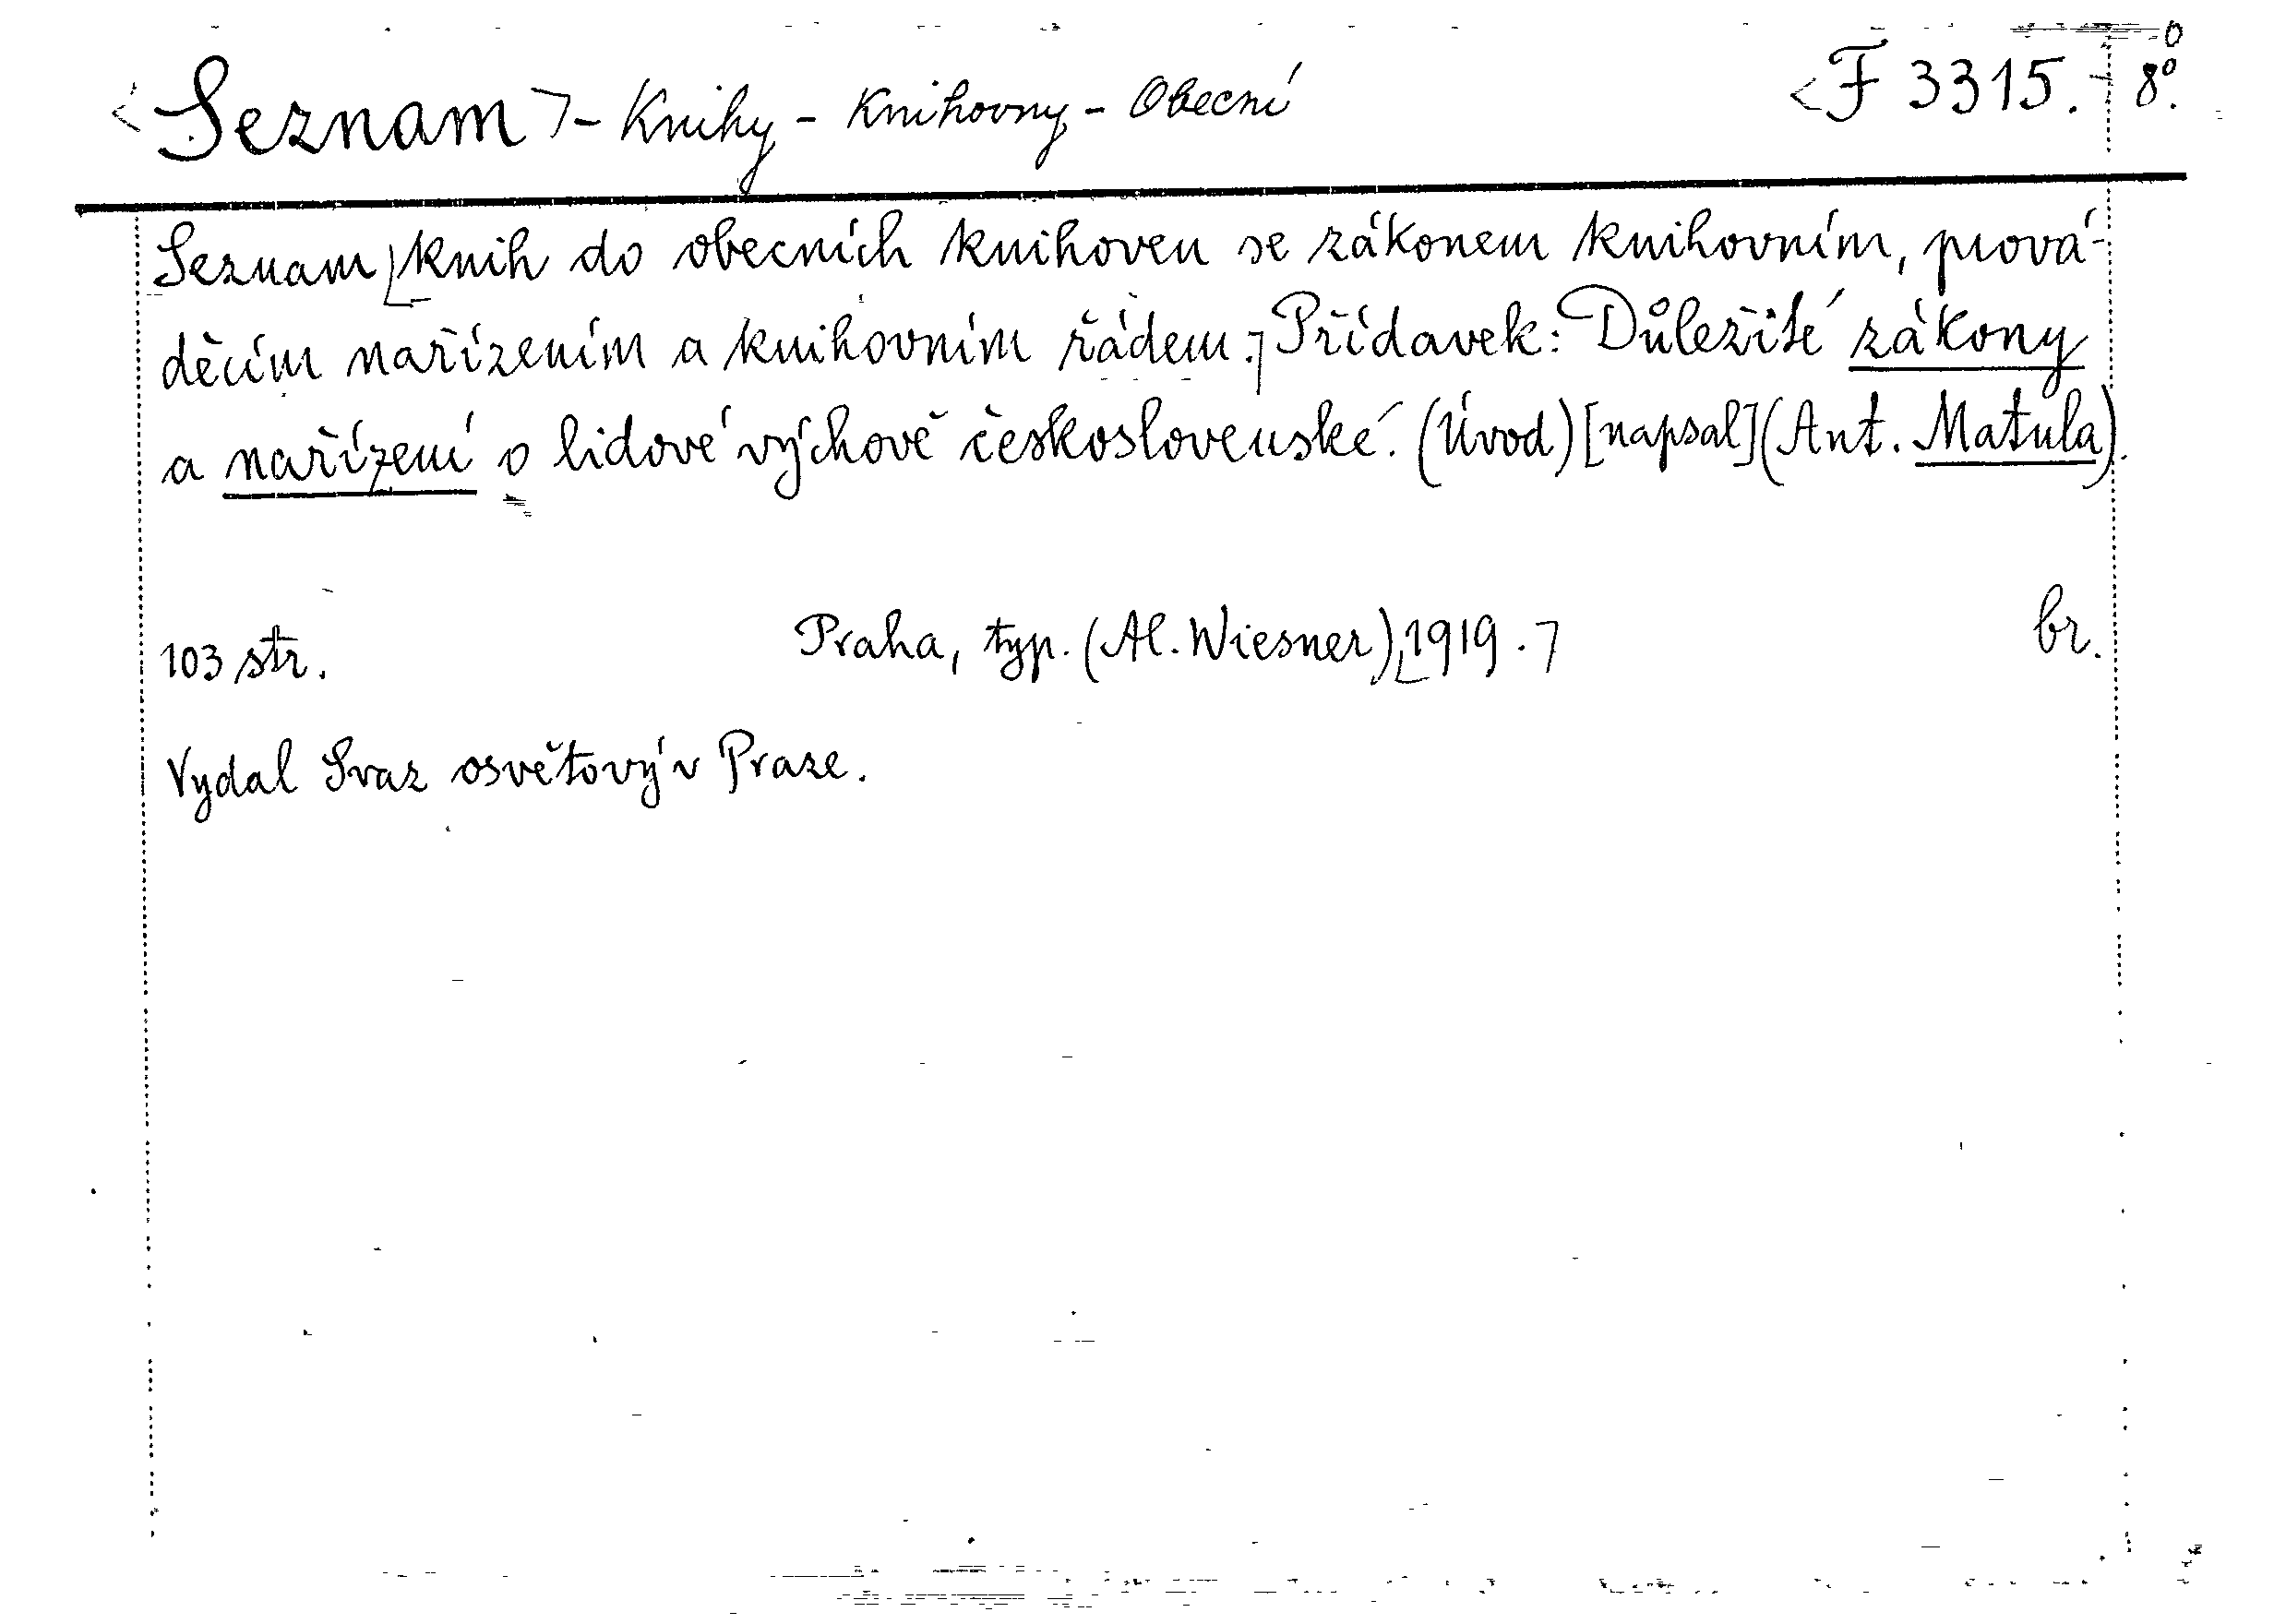 <Seznam>- Knihy - Knihovny - Obecní <F 3315. - 8°.
Seznam [knih do obecních knihoven se zákonem knihovním, prová-
děcím nařízením a knihovním řádem.] Přídavek: Důležité zákony
a nařízení o lidové výchově československé. (Úvod) [napsal] (Ant. Matula).
103 str. Praha, typ. (Al. Wiesner), [1919.] br.
Vydal Svaz osvětový v Praze.